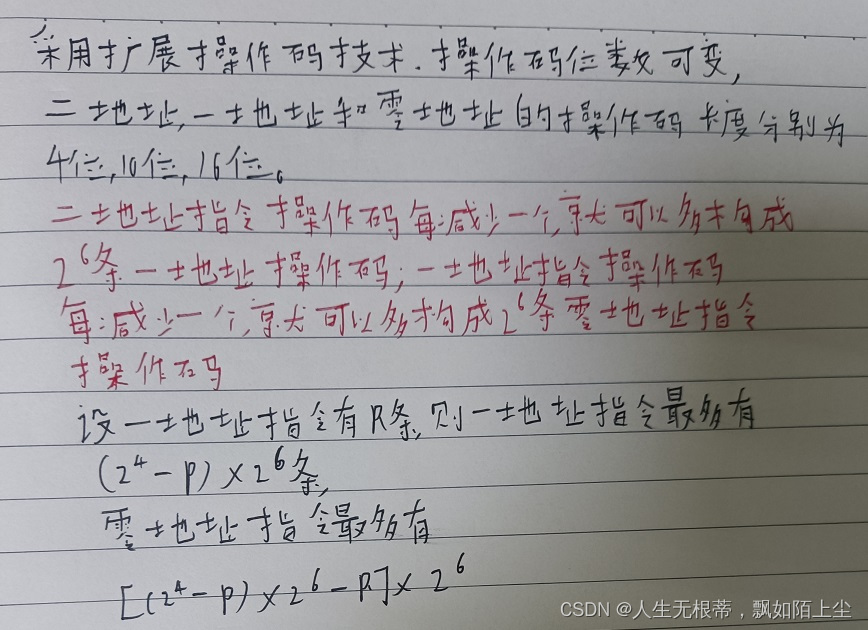 采用扩展操作码技术.操作码位数可变,
二地址,一地址和零地址的操作码长度分别为
4位,10位,16位。
二地址指令操作码每减少一个,就可以多构成
2⁶条一地址操作码;一地址指令操作码
每减少一个,就可以多构成2⁶条零地址指令
操作码
设一地址指令有R条,则一地址指令最多有
(2⁴-P)×2⁶条,
零地址指令最多有
[(2⁴-P)×2⁶-R]×2⁶
CSDN @人生无根蒂,飘如陌上尘